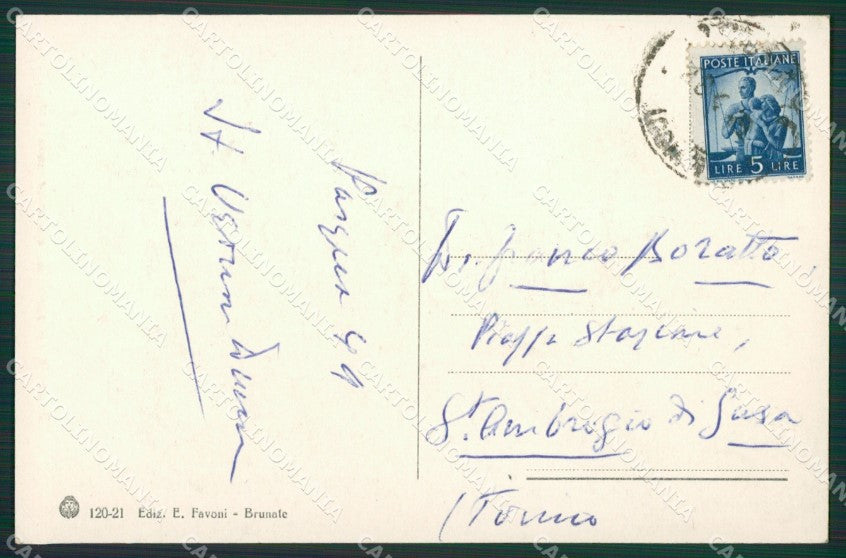 Pasqua 49
POSTE ITALIANE
LIRE 5 LIRE
Dr. Franco Boratto,
Piazza Stazione,
St. Ambrogio di Susa
(Torino
120-21 Ediz. E. Favoni - Brunate
CARTOLINOMANIA